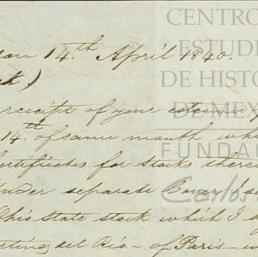 on 14.th April 1840.
receipt of your
14th of same month wh
certificates for Stocks there
under separate Cover, I
Ohio State Stock which I
del Rio - of Paris -
CENTRO
ESTUDI
DE HISTO
DE MEX
FUNDAC
Carlos